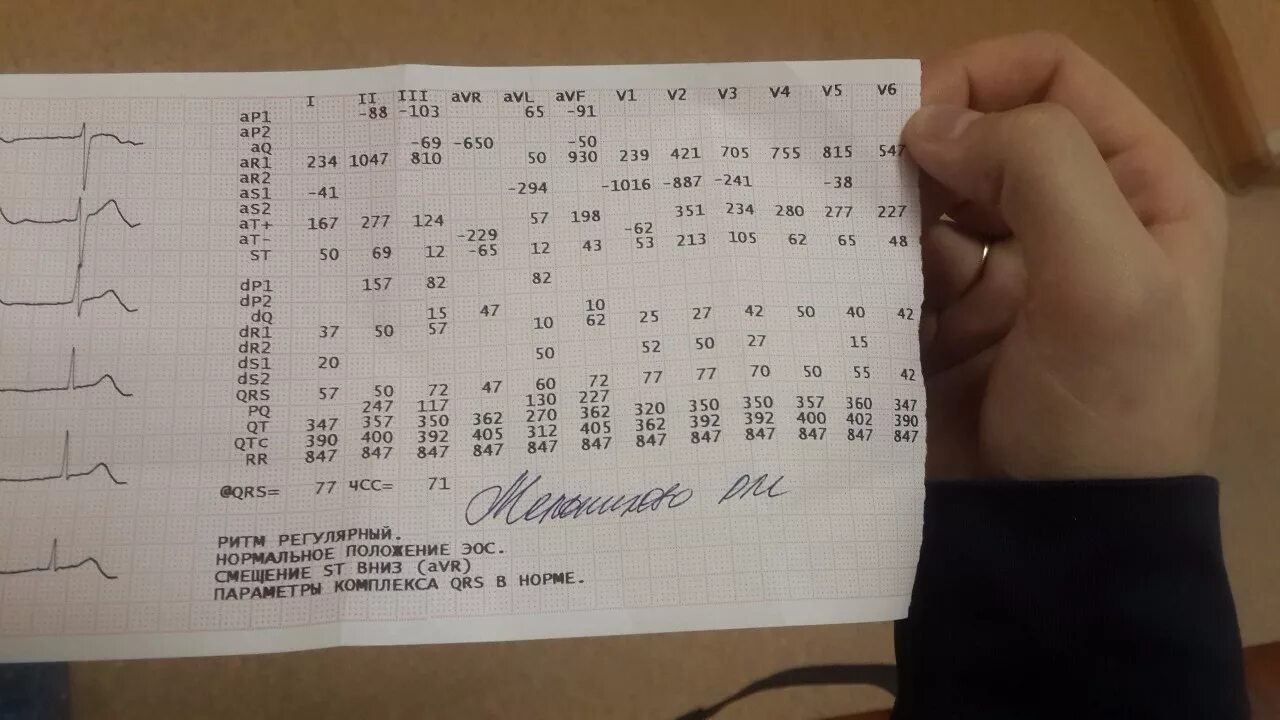 I II III aVR aVL aVF V1 V2 V3 V4 V5 V6
aP1 -88 -103 65 -91
aP2
aQ -69 -650 -50
aR1 234 1047 810 50 930 239 421 705 755 815 547
aR2
aS1 -41 -294 -1016 -887 -241 -38
aS2
aT+ 167 277 124 57 198 351 234 280 277 227
aT- -229 -62
ST 50 69 12 -65 12 43 53 213 105 62 65 48
dP1 157 82 82
dP2
dQ 15 47 10
dR1 37 50 57 10 62 25 27 42 50 40 42
dR2
dS1 20 50 52 50 27 15
dS2
QRS 57 50 72 47 60 72 77 77 70 50 55 42
PQ 247 117 130 227
QT 347 357 350 362 270 362 320 350 350 357 360 347
QTC 390 400 392 405 312 405 362 392 392 400 402 390
RR 847 847 847 847 847 847 847 847 847 847 847 847
@QRS= 77 ЧСС= 71
РИТМ РЕГУЛЯРНЫЙ.
НОРМАЛЬНОЕ ПОЛОЖЕНИЕ ЭОС.
СМЕЩЕНИЕ ST ВНИЗ (aVR)
ПАРАМЕТРЫ КОМПЛЕКСА QRS В НОРМЕ.